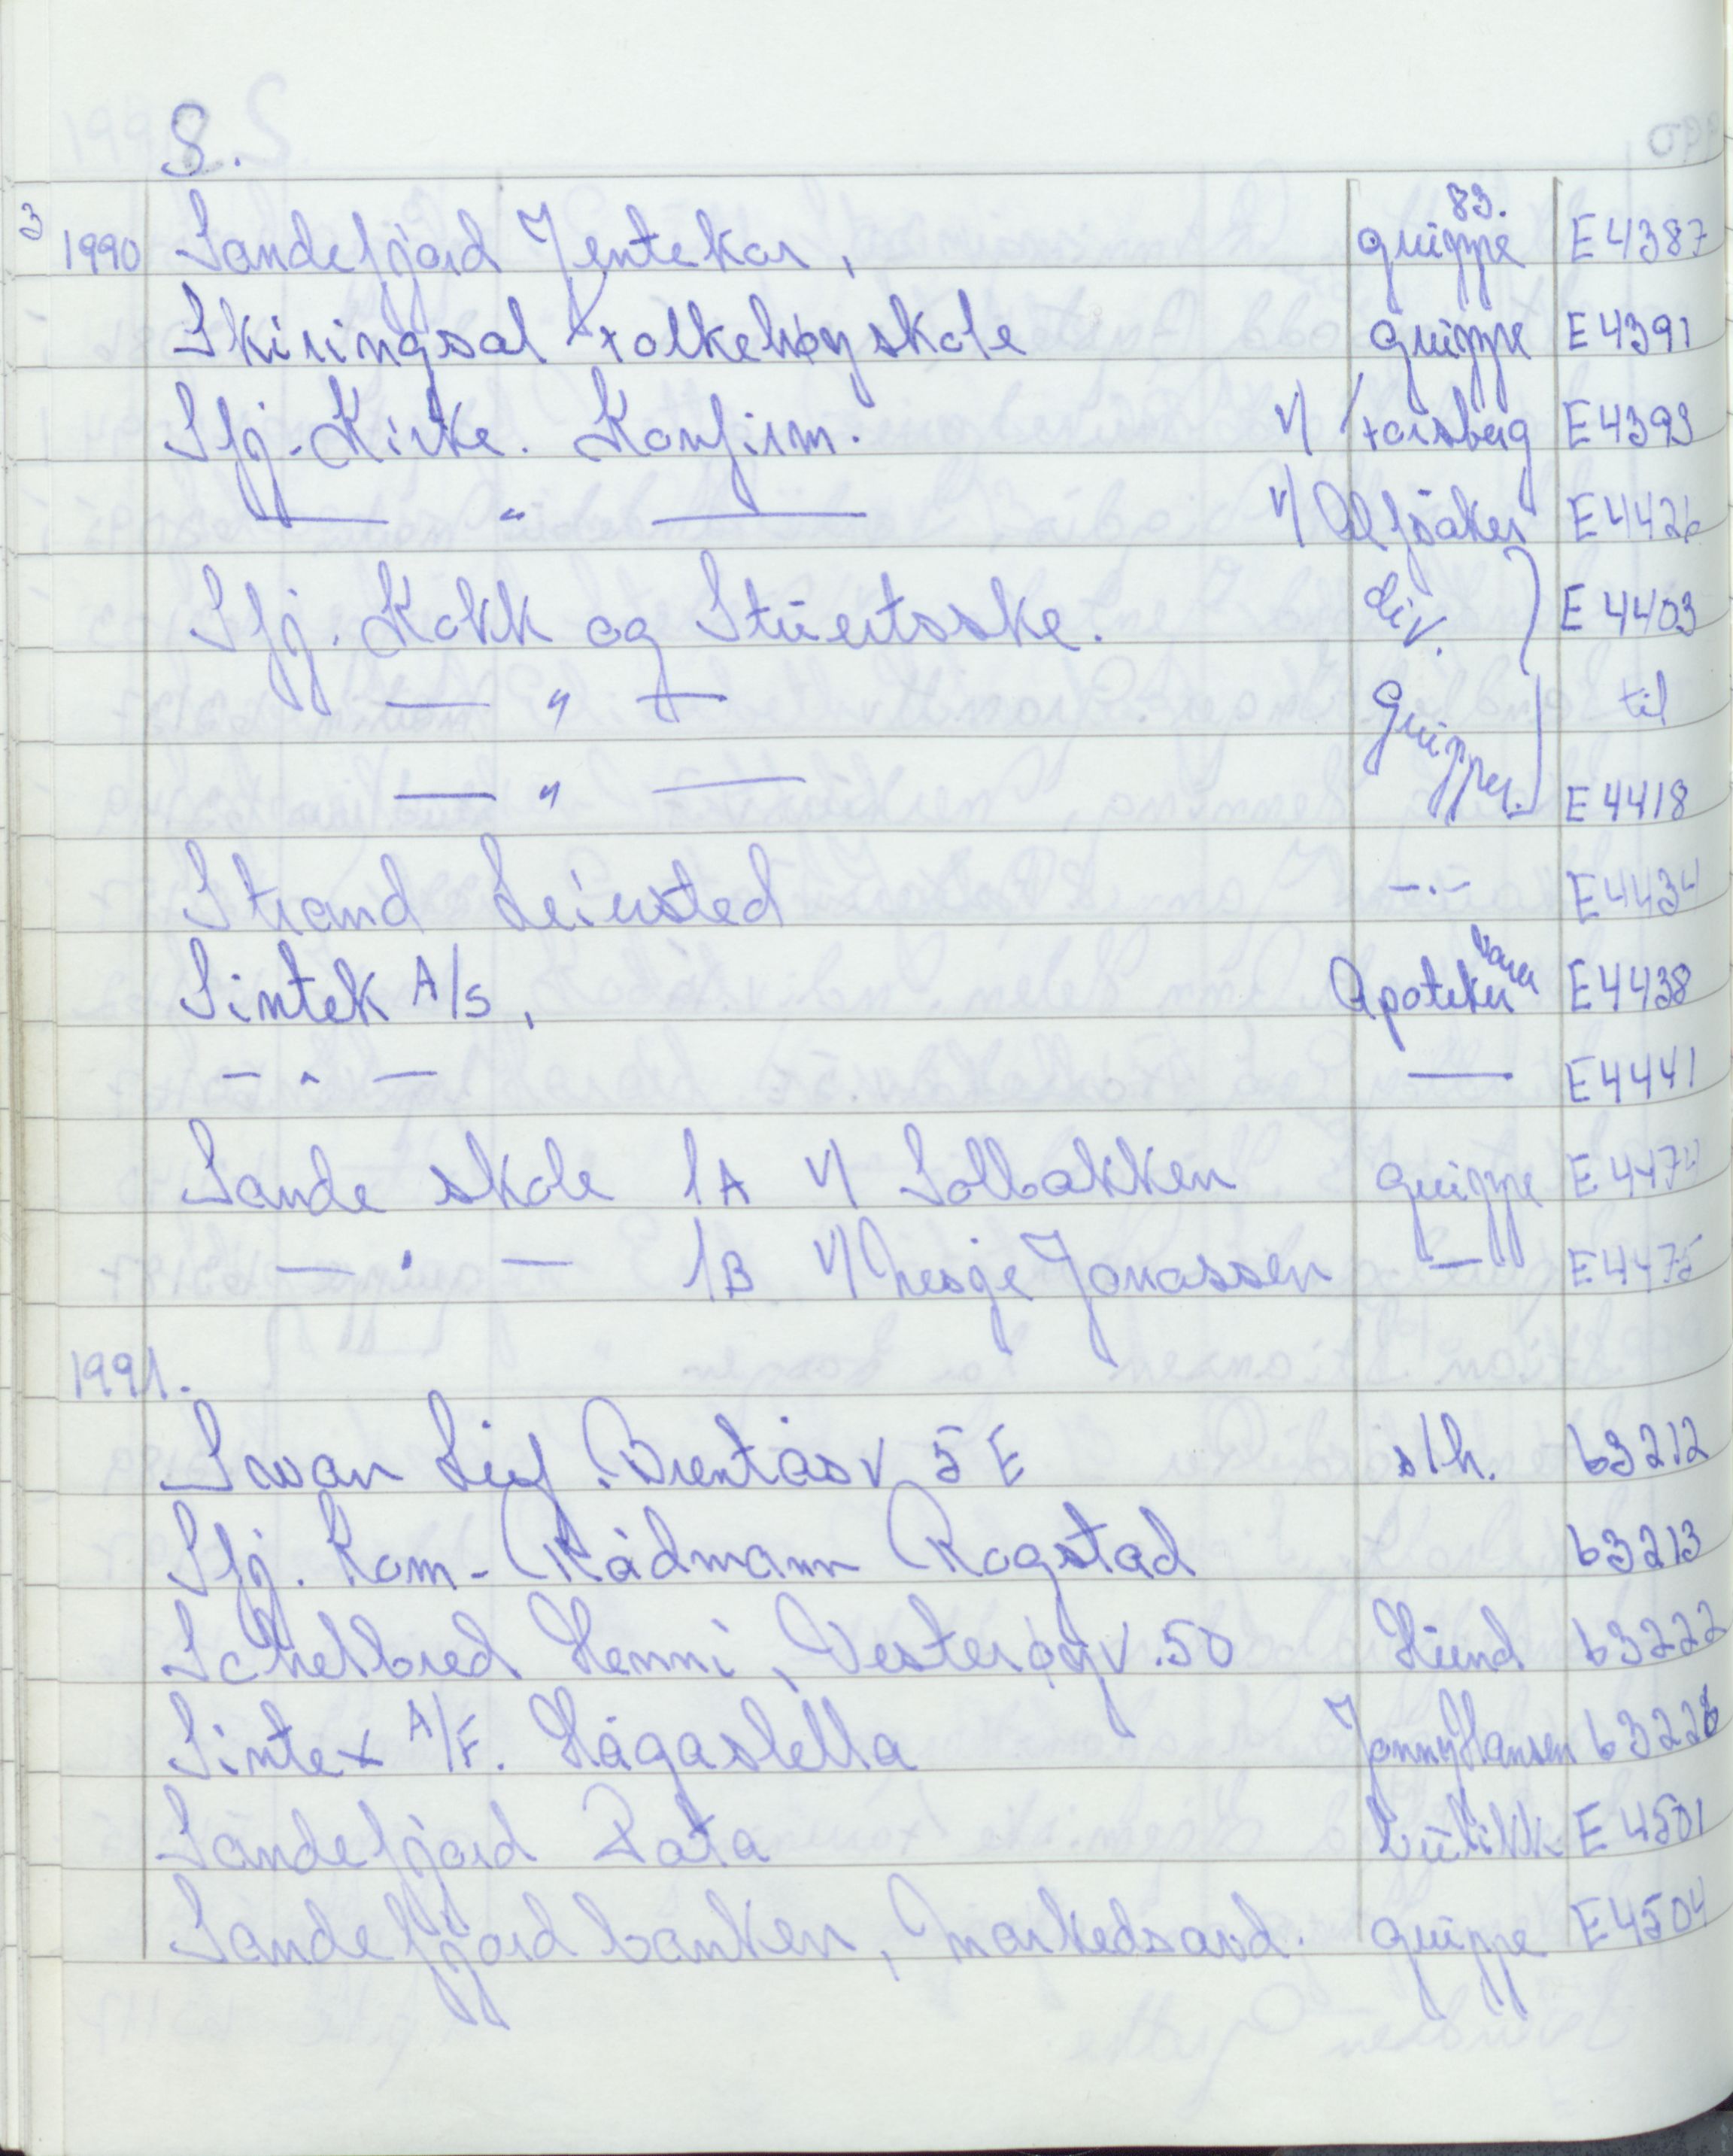 S.
83.
3 1990 Sandefjord Jentekor, gruppe E4387
Skiringsal Folkehøyskole gruppe E4391
Sfj. Kirke. Konfirm. v/ Forsberg E4393
— " — v/ Alfsåker E4426
Sfj. Kokk og Stuertsske. div. E4403
— " — Grupper. til
— " — E4418
Strand Leirsted — · — E4434
Sintek A/S, Apoteker varer E4438
— " — — E4441
Sande skole 1A v/ Solbakken gruppe E4474
— " — 1B v/ Jonassen — E4475
1991.
Svan Leif Brentåsv 5E s/h. 63212
Sfj. Kom- Rådmann Rogstad 63213
Schelbred Henni, Vesterøyv. 50 Hund 63222
Sintex A/F. Hågasletta Jonny Hansen 63228
Sandefjord Data butikk E4501
Sandefjord banken, Markedsavd. gruppe E4504